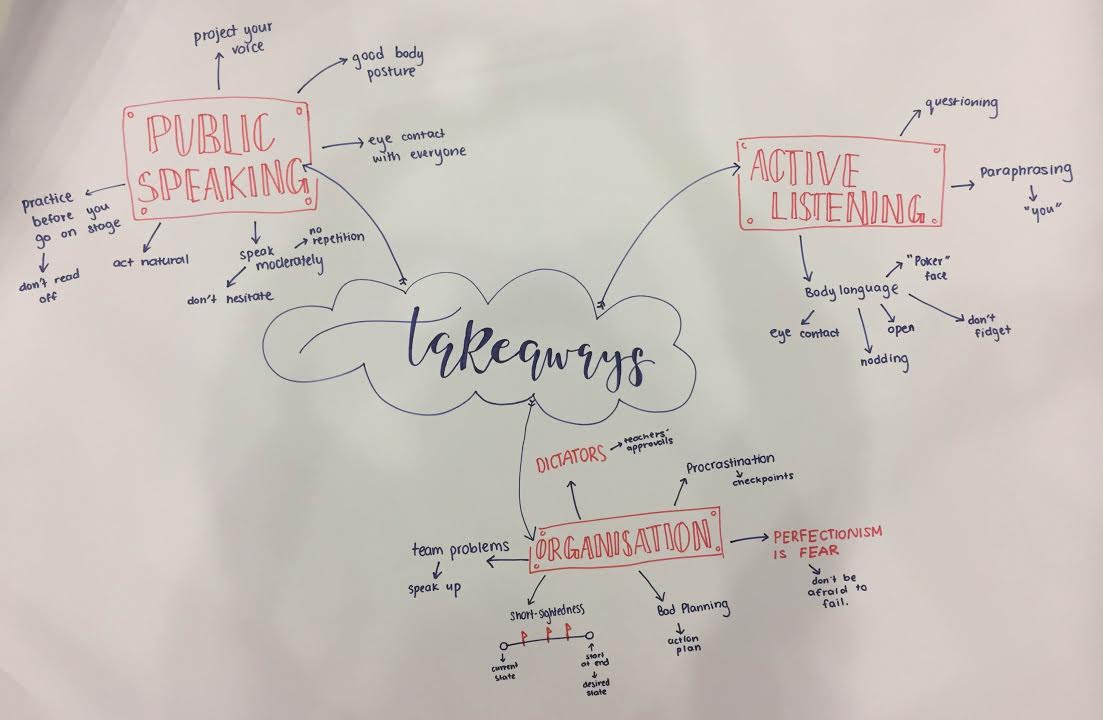 project your
voice
good body
posture
PUBLIC
SPEAKING
eye contact
with everyone
practice
before you
go on stage
don't read
off
act natural
speak
moderately
no
repetition
don't hesitate
takeaways
ACTIVE
LISTENING
questioning
Paraphrasing
"you"
Body language
"Poker"
face
eye contact
nodding
open
don't
fidget
ORGANISATION
DICTATORS
teachers'
approvals
Procrastination
checkpoints
PERFECTIONISM
IS FEAR
don't be
afraid to
fail.
team problems
speak up
short-sightedness
current
state
start
at end
desired
state
Bad Planning
action
plan